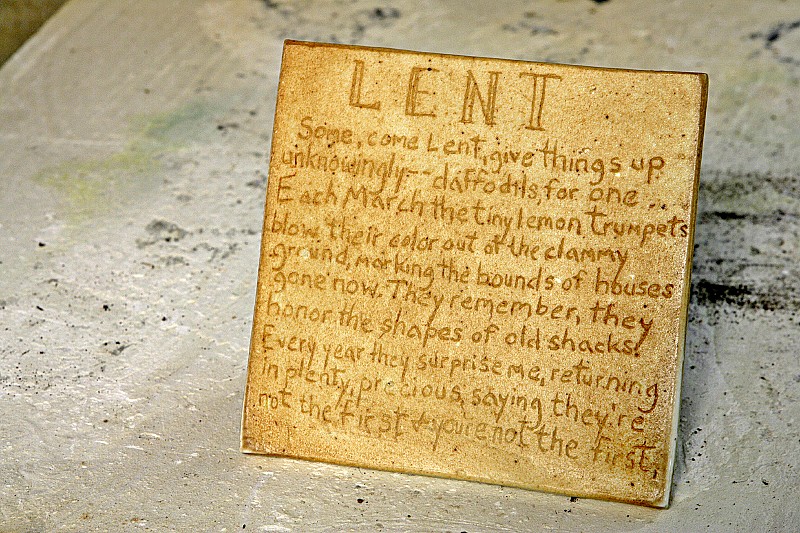 LENT
Some, come Lent, give things up
unknowingly -- daffodils, for one ..
Each March the tiny lemon trumpets
blow their color out of the clammy
ground, marking the bounds of houses
gone now. They remember, they
honor the shapes of old shacks.
Every year they surprise me, returning
in plenty, precious, saying they're
not the first & you're not the first,